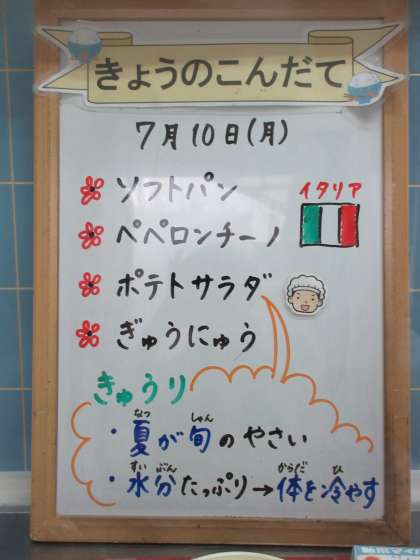 きょうのこんだて
7月10日(月)
ソフトパン
イタリア
ペペロンチーノ
ポテトサラダ
ぎゅうにゅう
きゅうり
・夏が旬のやさい
なつ しゅん
・水分たっぷり→体を冷やす
すい ぶん からだ ひ